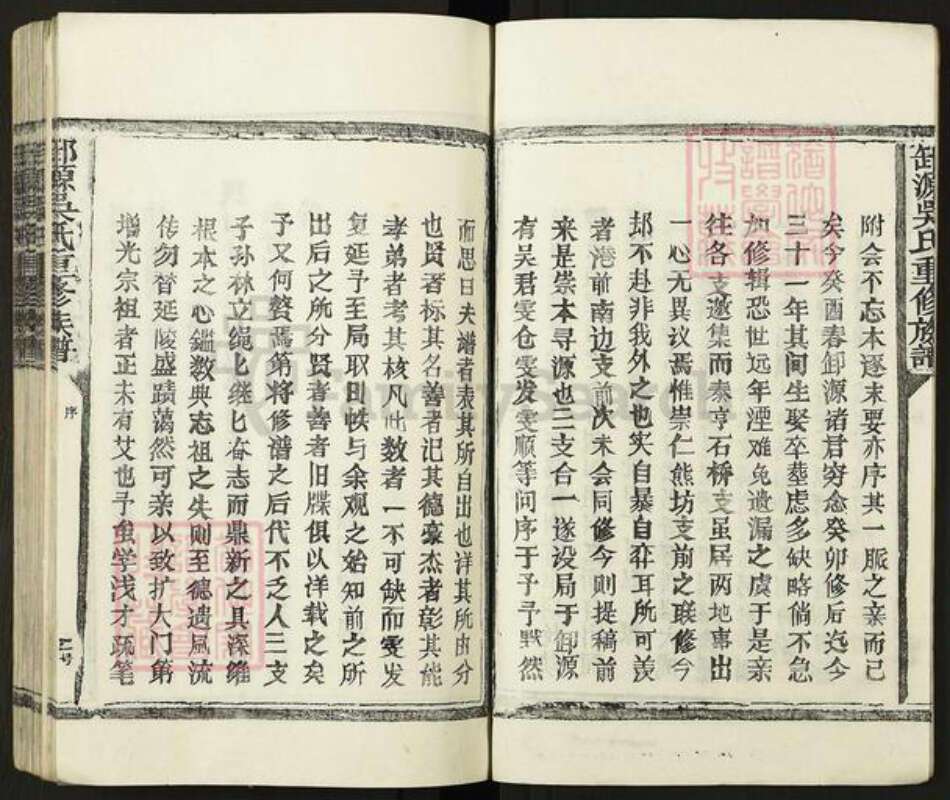 卸源吴氏重修族譜
附会不忘本逐末要亦序其一脈之亲而已
矣今癸酉春卸源诸君穷念癸卯修后迄今
三十一年其间生娶卒塟虑多缺略倘不急
加修辑恐世远年湮难免遗漏之虞于是亲
往各支邀集而泰亨石桥支虽居两地事出
一心无異议焉惟崇仁熊坊支前之联修今
却不赴非我外之也实自暴自弃耳所可羡
者港前南边支前次未会同修今则提稿前
来是崇本寻源也三支合一遂设局于卸源
有吴君雯仓雯发雯顺等问序于予予默然
而思曰夫谱者表其所自出也洋其所由分
也贤者标其名善者记其德豪杰者彰其能
孝弟者考其核凡此数者一不可缺而雯发
复延予至局取旧帙与余观之始知前之所
出后之所分贤者善者旧牒俱以洋载之矣
予又何赘焉第将修谱之后代不乏人三支
子孙林立绳匕继匕奋志而鼎新之具深雖
根本之心鑑数典忘祖之失则至德遗風流
传勿替延陵盛蹟蔼然可亲以致扩大门第
增光宗祖者正未有艾也予虽学浅才疏笔
卸源吴氏重修族譜
序